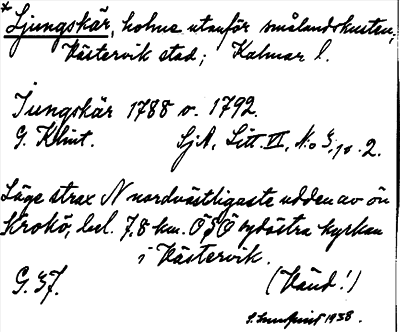 * Ljungskär, holme utanför smålandskusten;
Västervik stad; Kalmar l.
Jungskär 1788 o. 1792.
G. Klint. SjA, Litt. II, No 3, 10. 2.
Läge strax N nordvästligaste udden av ön
Krokö, bel. 7.8 km. OSO sydöstra kyrkan
i Västervik.
G. 37. (Vänd!)
1938.